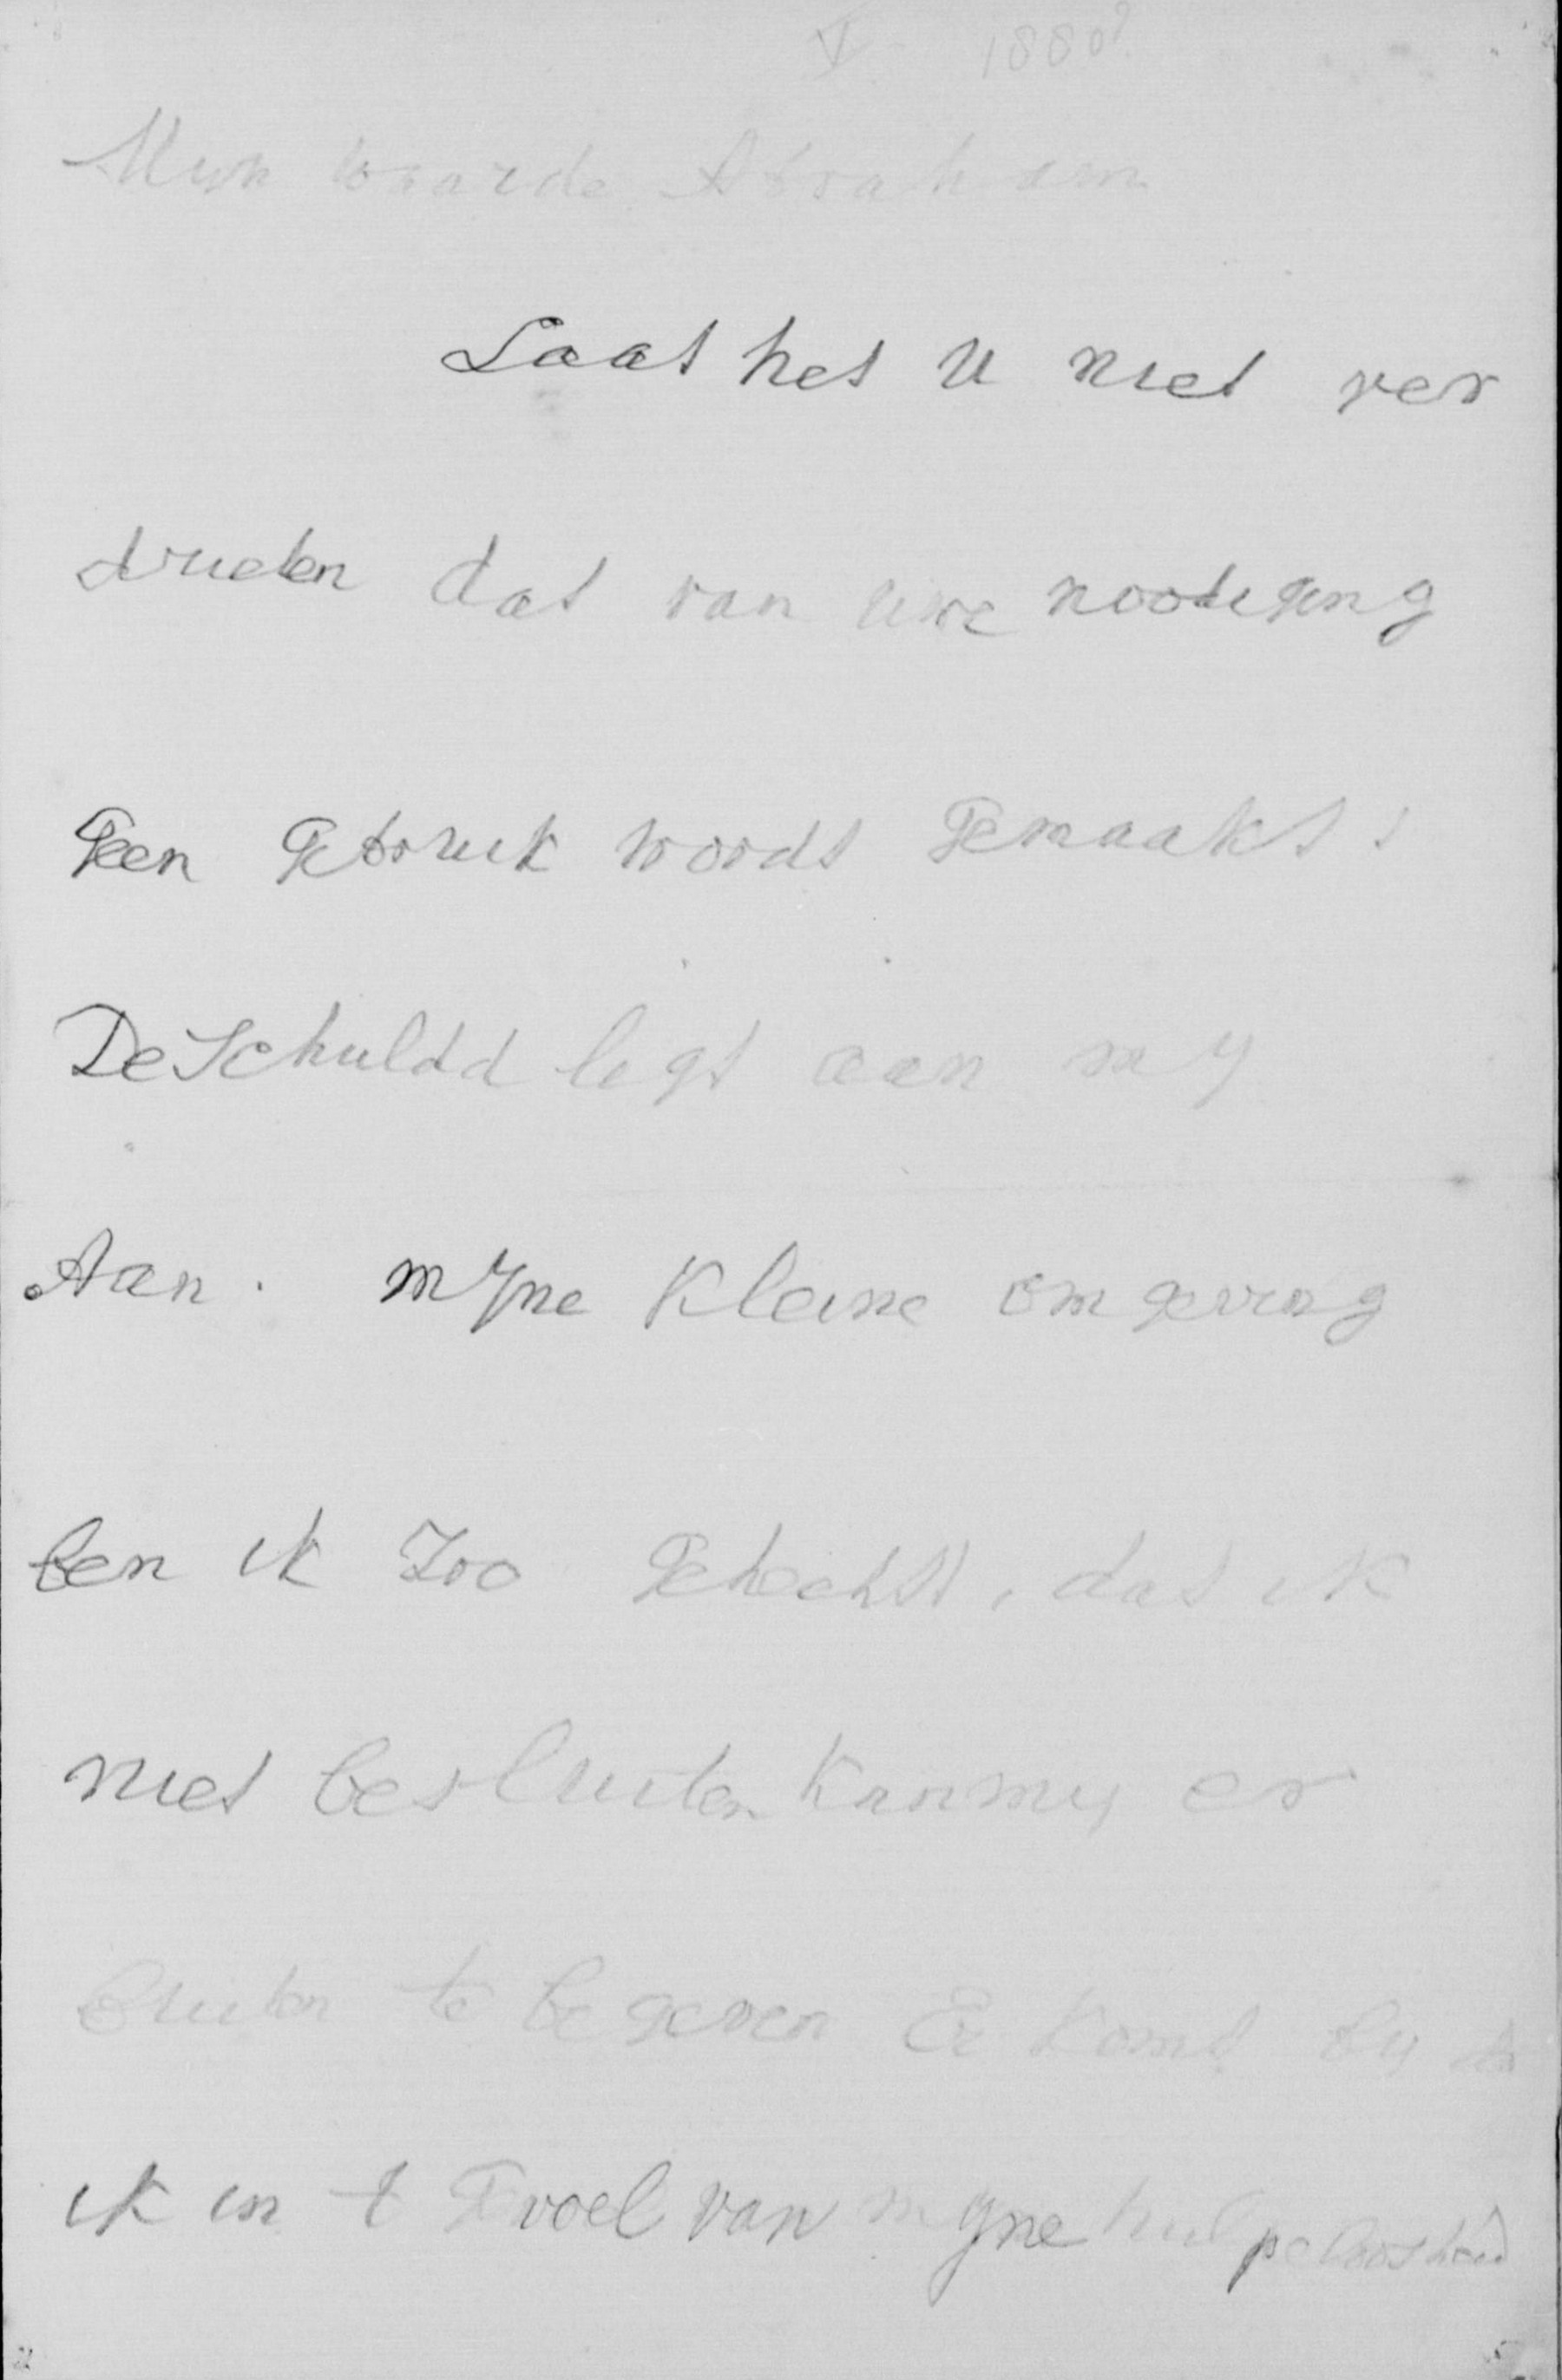 V 1880?
Mijn waarde Abraham
Laat het u niet ver
drieten dat van uwe noodiging
geen gebruik wordt gemaakt :
De Schuldd ligt aan my
Aan . myne kleine omgeving
ben ik Zoo gehecht , dat ik
niet besluiten kan my er
buiten te begeven Er komt by
ik in t gevoel van myne hulpeloosheid